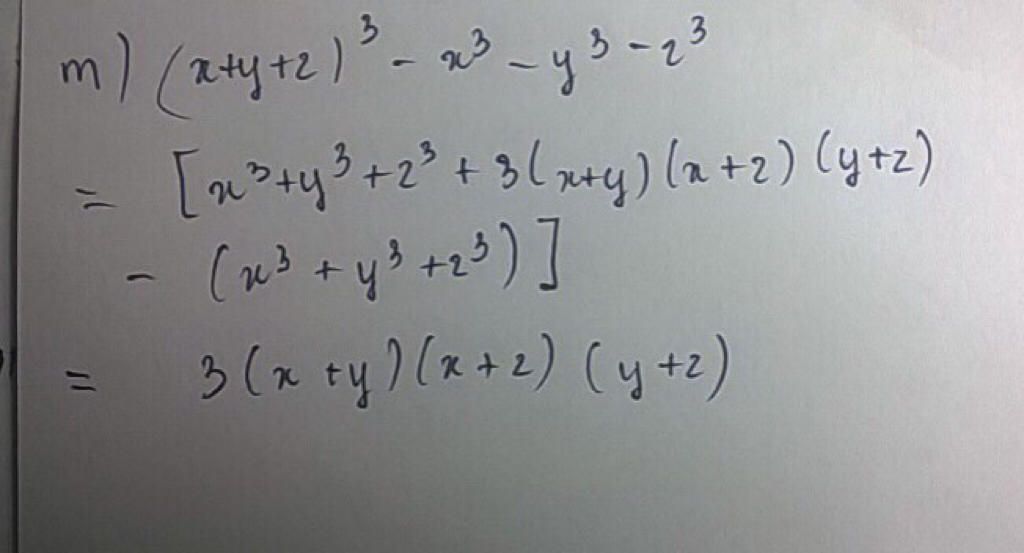 m) (x+y+z)³ - x³ - y³ - z³
= [x³+y³+z³ + 3(x+y)(x+z)(y+z)
- (x³ + y³ +z³)]
= 3(x+y)(x+z)(y+z)